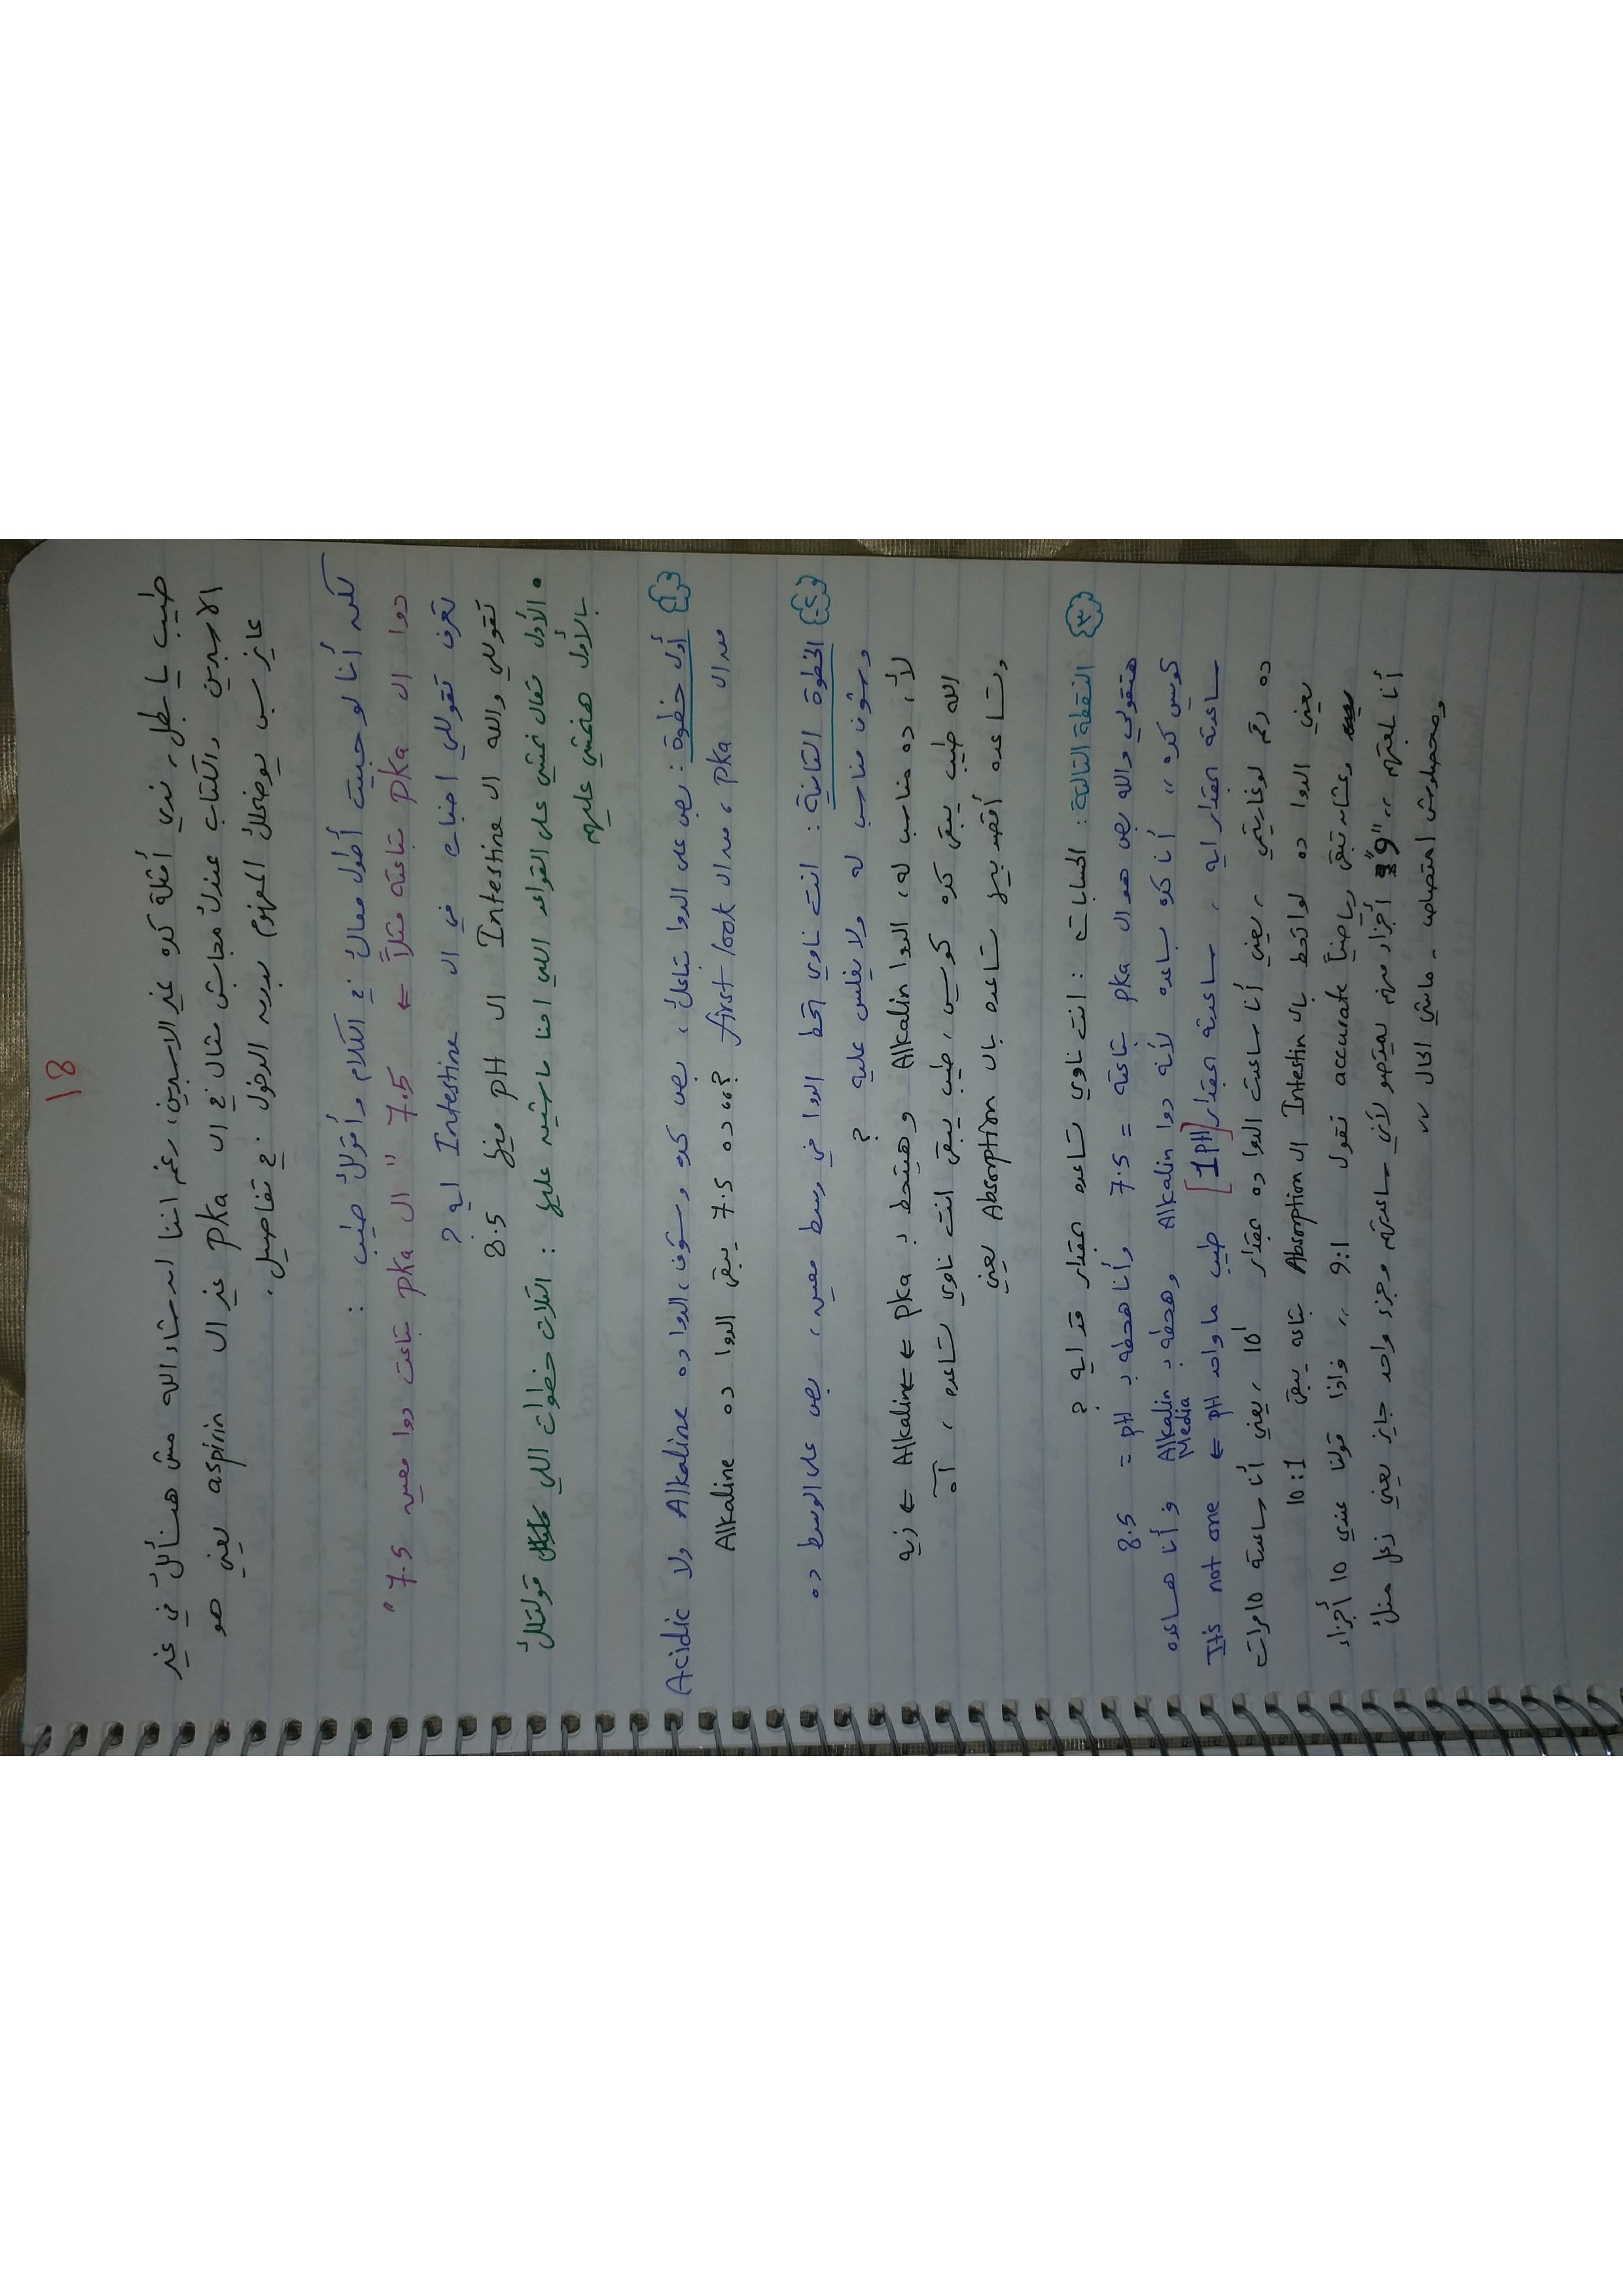 18
طيب يا بطل، ندي أمثلة كده غير الاسبرين، رغم اننا ان شاء الله مش هنسألك في غير
الاسبرين والكتاب عندك مجابش مثال في ال pka غير ال aspirin يعني هو
عايز بس يوضحلك المفهوم بدون الدخول في تفاصيل.
لكن أنا لو حبيت أطول معاك في الكلام وأقولك طيب :
دوا ال pka بتاعته مثلاً ← 7.5 " ال pka بتاعت دوا معين 7.5 "
تعرف تقوللي اخباره في ال Intestine ايه ?
تقوللي والله ال Intestine ال pH فيها 8.5
• الأول تعال نمشي على القواعد اللي احنا ماشيين عليها : التلات خطوات اللي قولتلك
بالأول هنمشي عليهم
١ أول خطوة : بص على الدوا بتاعك، بص كده وشوف، الدوا ده Alkaline ولا Acidic
من ال pka ، من ال first look ده 7.5 يبقى الدوا ده Alkaline
٢ الخطوة التانية : انت ناوي تحط الدوا في وسط معين، بص على الوسط ده
وشوف مناسب له ولا يغلس عليه ?
لأ، ده مناسب له، الدوا Alkalin وهيتحط بـ pka ← Alkaline ← زيه
الله طيب يبقى كده كويس، طيب يبقى انت ناوي تساعده ، آه
وتساعده أقصد بيها تساعده بال Absorption يعني
٣ النقطة التالتة : الحسابات : انت ناوي تساعده بمقدار قد ايه ?
هتقولي والله بص هو ال pka بتاعته = 7.5 وأنا هحطه بـ pH = 8.5
كويس كده ،، أنا كده بساعده لأنه دوا Alkalin وهحطه بـ Alkalin Media فأنا هساعده
ساعدته بمقدار ايه ، ساعدته بمقدار [1 PH] طيب ما واحد pH ← It's not one
ده رقم لوغاريتمي ، يعني أنا ساعدت الدوا ده بمقدار 10¹ ، يعني أنا ساعدته 10 مرات
يعني الدوا ده لو اتحط بال Intestin ال Absorption بتاعه يبقى 10:1
وعشان تبقى رياضياً accurate نقول 9:1 ،، فإذا قولنا عندي 10 أجزاء
أنا بلعتهم ،، "9" أجزاء منهم ليمتصو لأني ساعدتهم وجزء واحد جايز يعني زعل منك
ومحصلوش امتصاص - ماشي الحال ،،